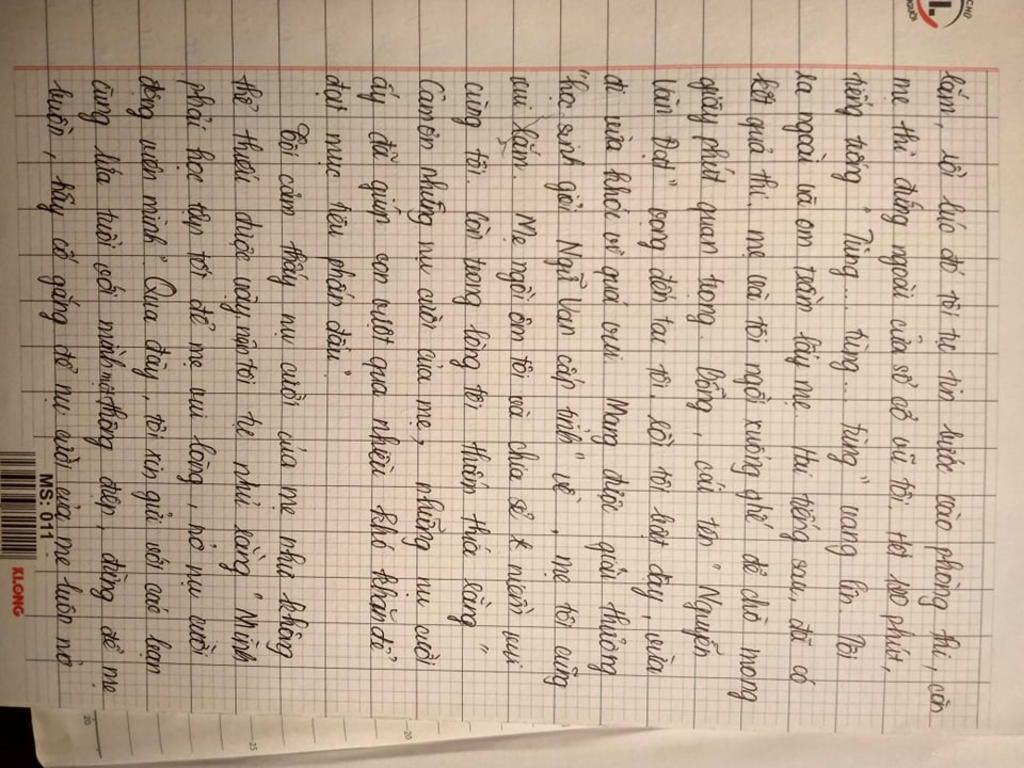 lắm, rồi lúc đó tôi tự tin bước vào phòng thi, còn
mẹ thì đứng ngoài cửa sổ cổ vũ tôi. Hết 120 phút,
tiếng trống "Tùng... tùng... tùng" vang lên. Tôi
ra ngoài và ôm trầm lấy mẹ. Hai tiếng sau, đã có
kết quả thi, mẹ và tôi ngồi xuống ghế để chờ mong
giây phút quan trọng. Bỗng, cái tên "Nguyễn
Văn Đạt" vọng đến tai tôi, rồi tôi bật dậy, vừa
đi vừa khóc vì quá vui. Mang được giải thưởng
"học sinh giỏi Ngữ Văn cấp tỉnh" về, mẹ tôi cũng
vui lắm. Mẹ ngồi ôm tôi và chia sẻ niềm vui
cùng tôi. Còn trong lòng tôi thầm thía rằng "
Cảm ơn những nụ cười của mẹ, những nụ cười
ấy đã giúp con vượt qua nhiều khó khăn để
đạt mục tiêu phấn đấu".
Tôi cảm thấy nụ cười của mẹ như không
thể thiếu được vậy nên tôi tự nhủ rằng "Mình
phải học tập tốt để mẹ vui lòng, nở nụ cười
động viên mình". Qua đây, tôi xin gửi với các bạn
cùng lứa tuổi với mình một thông điệp, đừng để mẹ
buồn, hãy cố gắng để nụ cười của mẹ luôn nở
MS: 011
KLONG
20
25
20